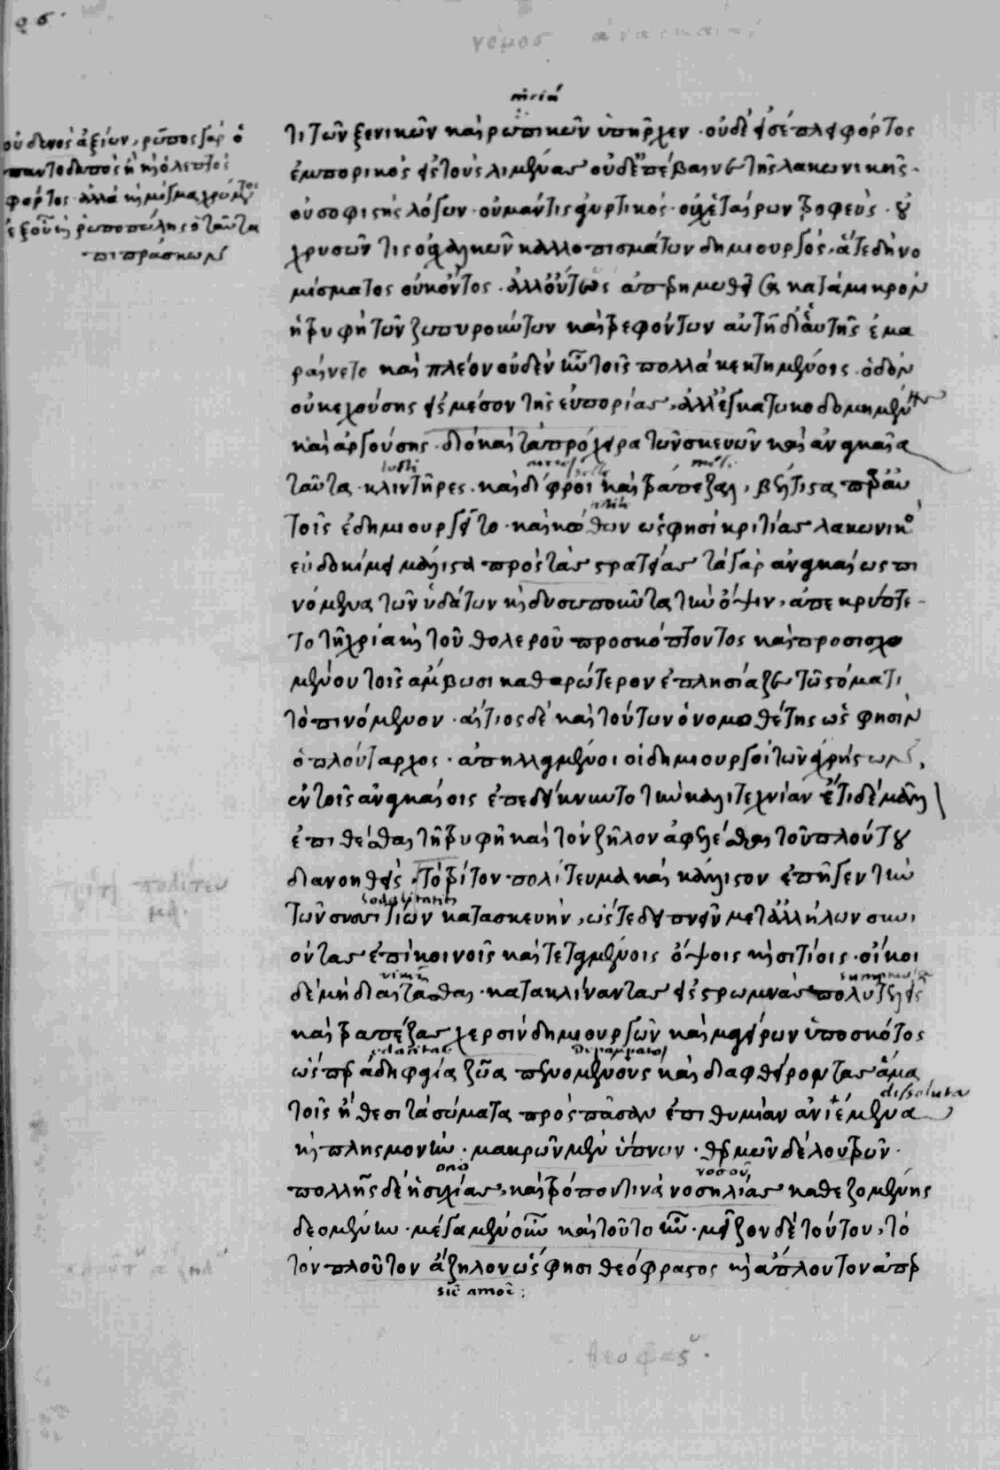 τι τῶν ξενικῶν καὶ ῥωπικῶν ὑπῆρχεν · οὐδ' εἰσέπλει φόρτος
ἐμπορικὸς εἰς τοὺς λιμένας οὐδ' ἐπέβαινε τῆς λακωνικῆς ·
οὐ σοφιστὴς λόγων · οὐ μάντις ἀγυρτικός · οὐχ ἑταίρων τροφεύς · οὐ
χρυσῶν τις οὐ χαλκῶν καλλοπισμάτων δημιουργός · ἅτε δὴ νο
μίσματος οὐκ ὄντος · ἀλλ' οὕτως ἀπερημωθεῖσα κατὰ μικρὸν
ἡ τρυφὴ τῶν ζωπυρούντων καὶ τρεφόντων αὐτὴ δι' αὑτῆς ἐμα
ραίνετο καὶ πλέον οὐδὲν ἦν τοῖς πολλὰ κεκτημένοις · ὁδὸν
οὐκ ἐχούσης εἰς μέσον τῆς εὐπορίας, ἀλλ' ἐγκατωκοδομημένης
καὶ ἀργούσης · διὸ καὶ τὰ πρόχειρα τῶν σκευῶν καὶ ἀναγκαῖα
ταῦτα · κλιντῆρες · καὶ δίφροι καὶ τράπεζαι, βέλτιστα παρ' αὐ
τοῖς ἐδημιουργεῖτο · καὶ κώθων ὥς φησι κριτίας λακωνικὸς
εὐδοκίμει μάλιστα πρὸς τὰς στρατείας τὰ γὰρ ἀναγκαίως πι
νόμενα τῶν ὑδάτων καὶ δυσωποῦντα τὴν ὄψιν, ἀπεκρύπτε
το τῇ χρόᾳ καὶ τοῦ θολεροῦ προσκόπτοντος καὶ προσισχο
μένου τοῖς ἄμβωσι καθαρώτερον ἐπλησίαζε τῷ στόματι
τὸ πινόμενον · αἴτιος δὲ καὶ τούτων ὁ νομοθέτης ὥς φησιν
ὁ πλούταρχος · ἀπηλλαγμένοι οἱ δημιουργοὶ τῶν ἀχρήστων,
ἐν τοῖς ἀναγκαίοις ἐπεδείκνυντο τὴν καλλιτεχνίαν ἔτι δὲ μᾶλλον
ἐπιθέσθαι τῇ τρυφῇ καὶ τὸν ζῆλον ἀφελέσθαι τοῦ πλούτου
διανοηθείς · τὸ τρίτον πολίτευμα καὶ κάλλιστον ἐπῆγεν τὴν
τῶν συσσιτίων κατασκευήν, ὥστε δειπνεῖν μετ' ἀλλήλων συνι
όντας ἐπὶ κοινοῖς καὶ τεταγμένοις ὄψοις καὶ σιτίοις · οἴκοι
δὲ μὴ διαιτᾶσθαι · κατακλίναντας εἰς στρωμνὰς πολυτελεῖς
καὶ τραπέζας χερσὶν δημιουργῶν καὶ μαγείρων ὑπὸ σκότος
ὥσπερ ἀδηφάγα ζῶα πιαινομένους καὶ διαφθείροντας ἅμα
τοῖς ἤθεσι τὰ σώματα πρὸς πᾶσαν ἐπιθυμίαν ἀνιέμενα
καὶ πλησμονὴν · μακρῶν μὲν ὕπνων · θερμῶν δὲ λουτρῶν ·
πολλῆς δὲ ἡσυχίας, καὶ τρόπον τινὰ νοσηλείας καθεζομένης
δεομένων · μέγα μὲν οὖν καὶ τοῦτο ἦν · μεῖζον δὲ τούτου, τὸ
τὸν πλοῦτον ἄζηλον ὥς φησι θεόφραστος καὶ ἄπλουτον ἀπερ
οὐδενὸς ἀξίων, ῥῶπος γὰρ ὁ
παντοδαπὸς ἢ καὶ ὁ λεπτὸς
φόρτος · ἀλλὰ καὶ μίγμα χρώματος
ἐξ οὗ καὶ ῥωποπώλης ὁ ταῦτα
πιπράσκων
τρίτη πολίτευ
μα ·